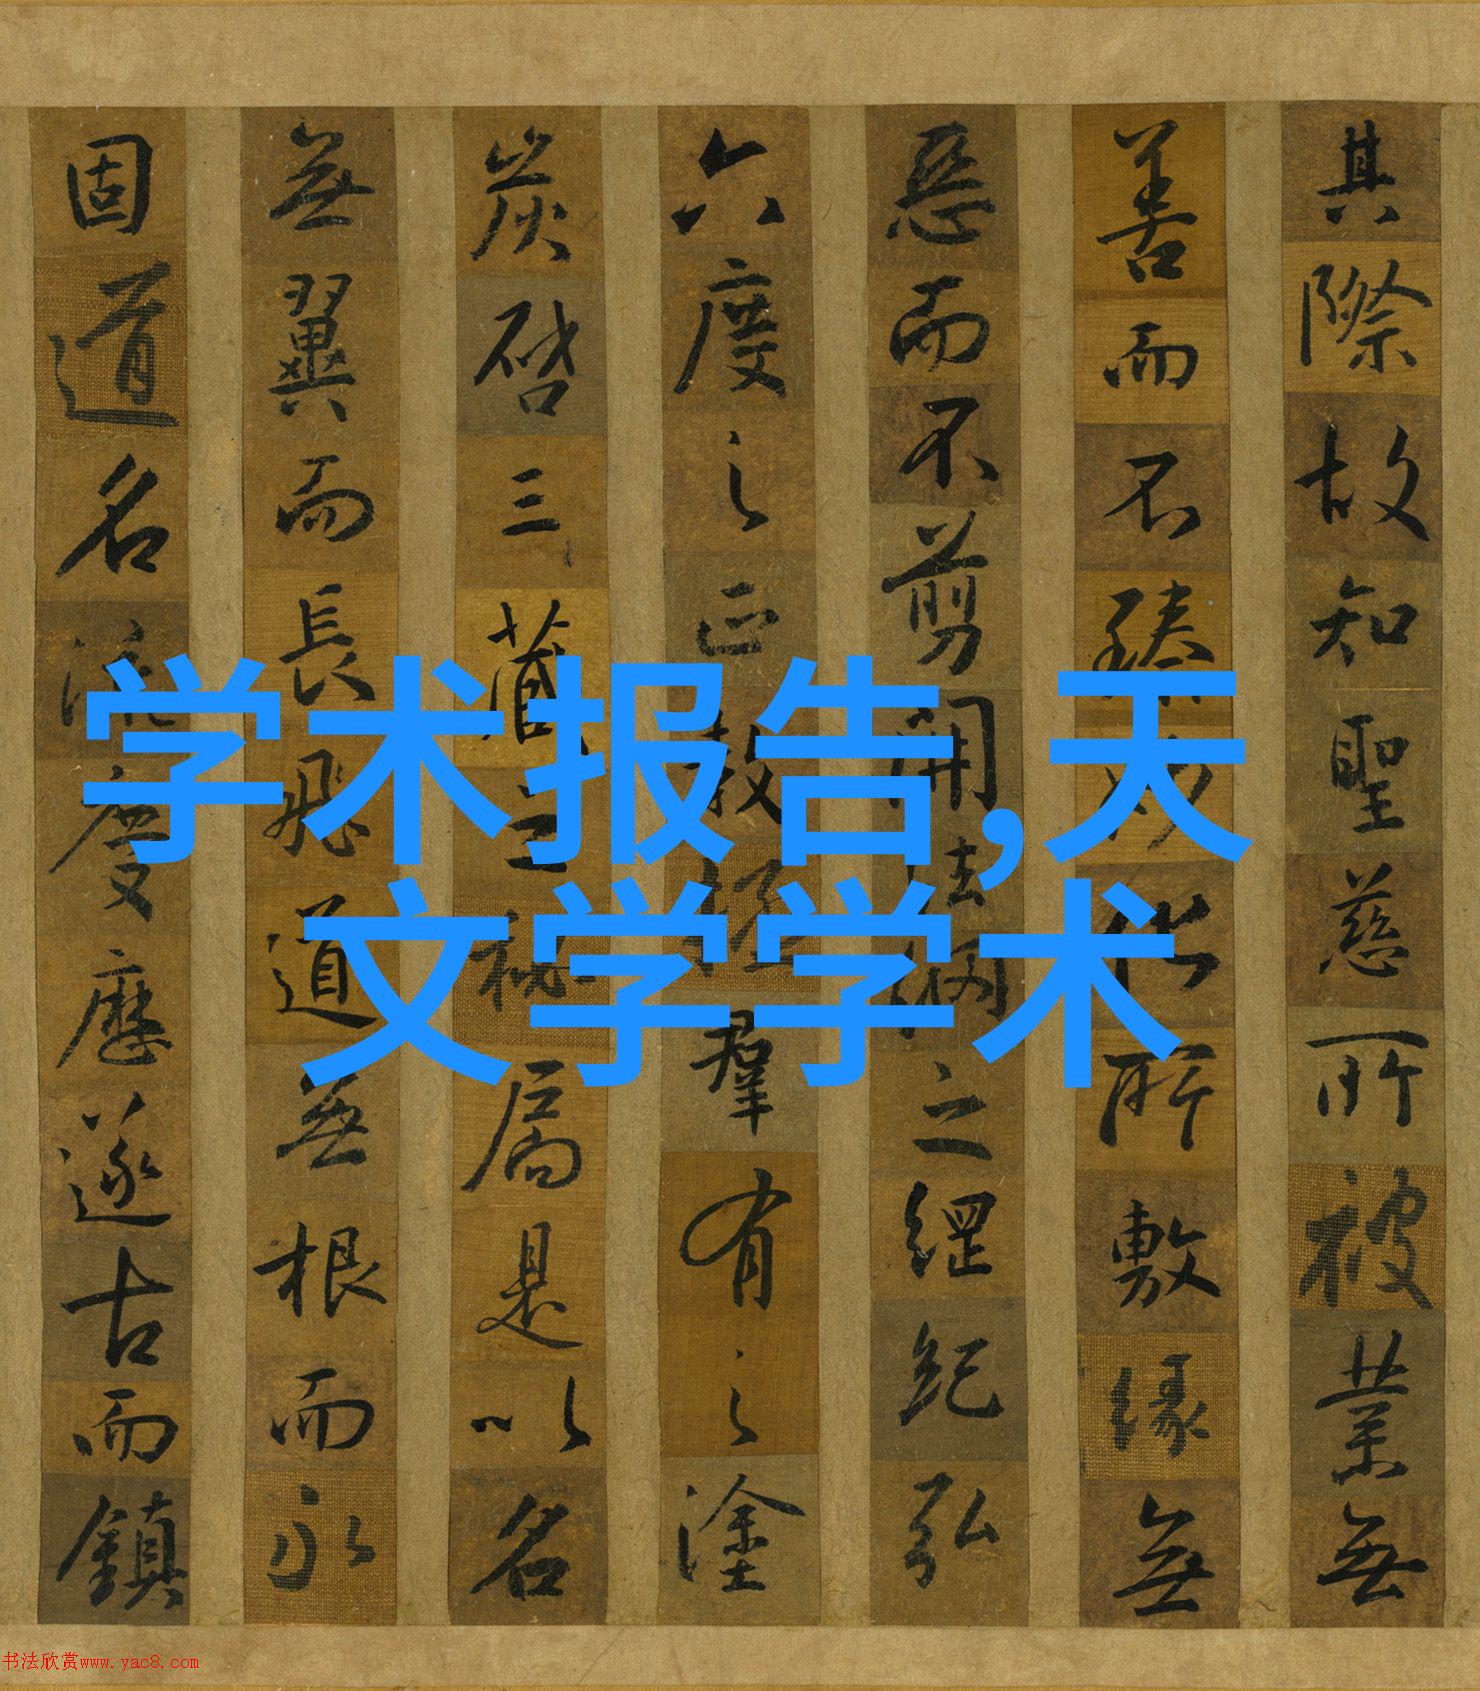 学术报告,天
文学学术
其際故知聖慈所被業無
善而不臻妙化所敷緣無
惡而不剪開法網之綱紀弘
六度之正教拯羣有之塗
炭啓三藏之秘扃是以名
無翼而長飛道無根而永
固道名流慶歷遂古而鎮
书法欣赏www.yac8.com